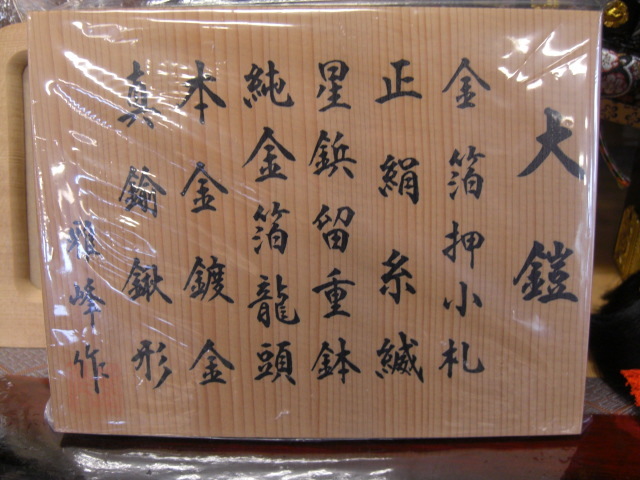 大鎧
金箔押小札
正絹糸縅
星鋲留重鉢
純金箔龍頭
本金鍍金
真鍮鍬形
雅峰作